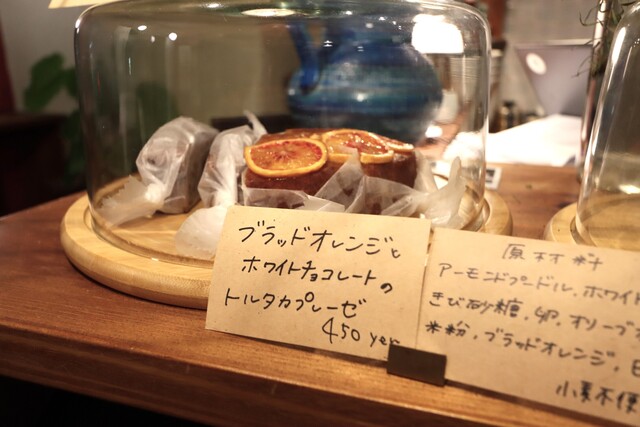 ブラッドオレンジと
ホワイトチョコレートの
トルタカプレーゼ
450 yen
原材料
アーモンドプードル、ホワイ
きび砂糖、卵、オリーブ
米粉、ブラッドオレンジ、
小麦不使